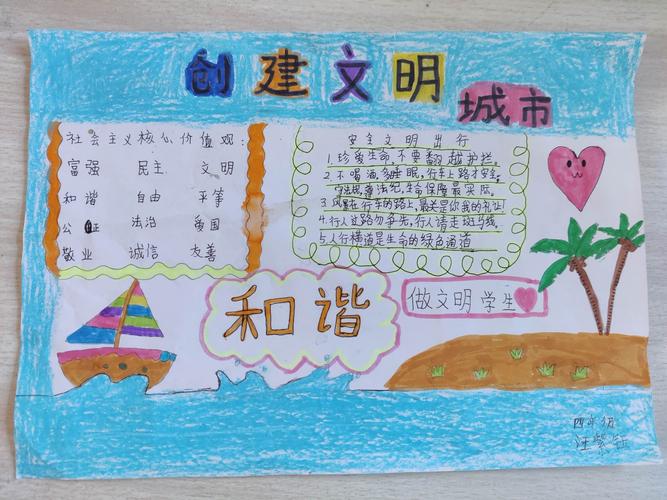 创建文明
城市
社会主义核心价值观:
富强 民主 文明
和谐 自由 平等
公正 法治 爱国
敬业 诚信 友善
安全文明出行
1.珍爱生命,不要翻越护拦。
2.不喝酒,多睡眠,行车上路才安全。
守法规,遵法纪,生命保障最实际。
3.风景在行车的路上,最美是你我的礼让!
4.行人过路勿争先,行人请走斑马线。
5.人行横道是生命的绿色通道
和谐
做文明学生
四年级
汪紫钰